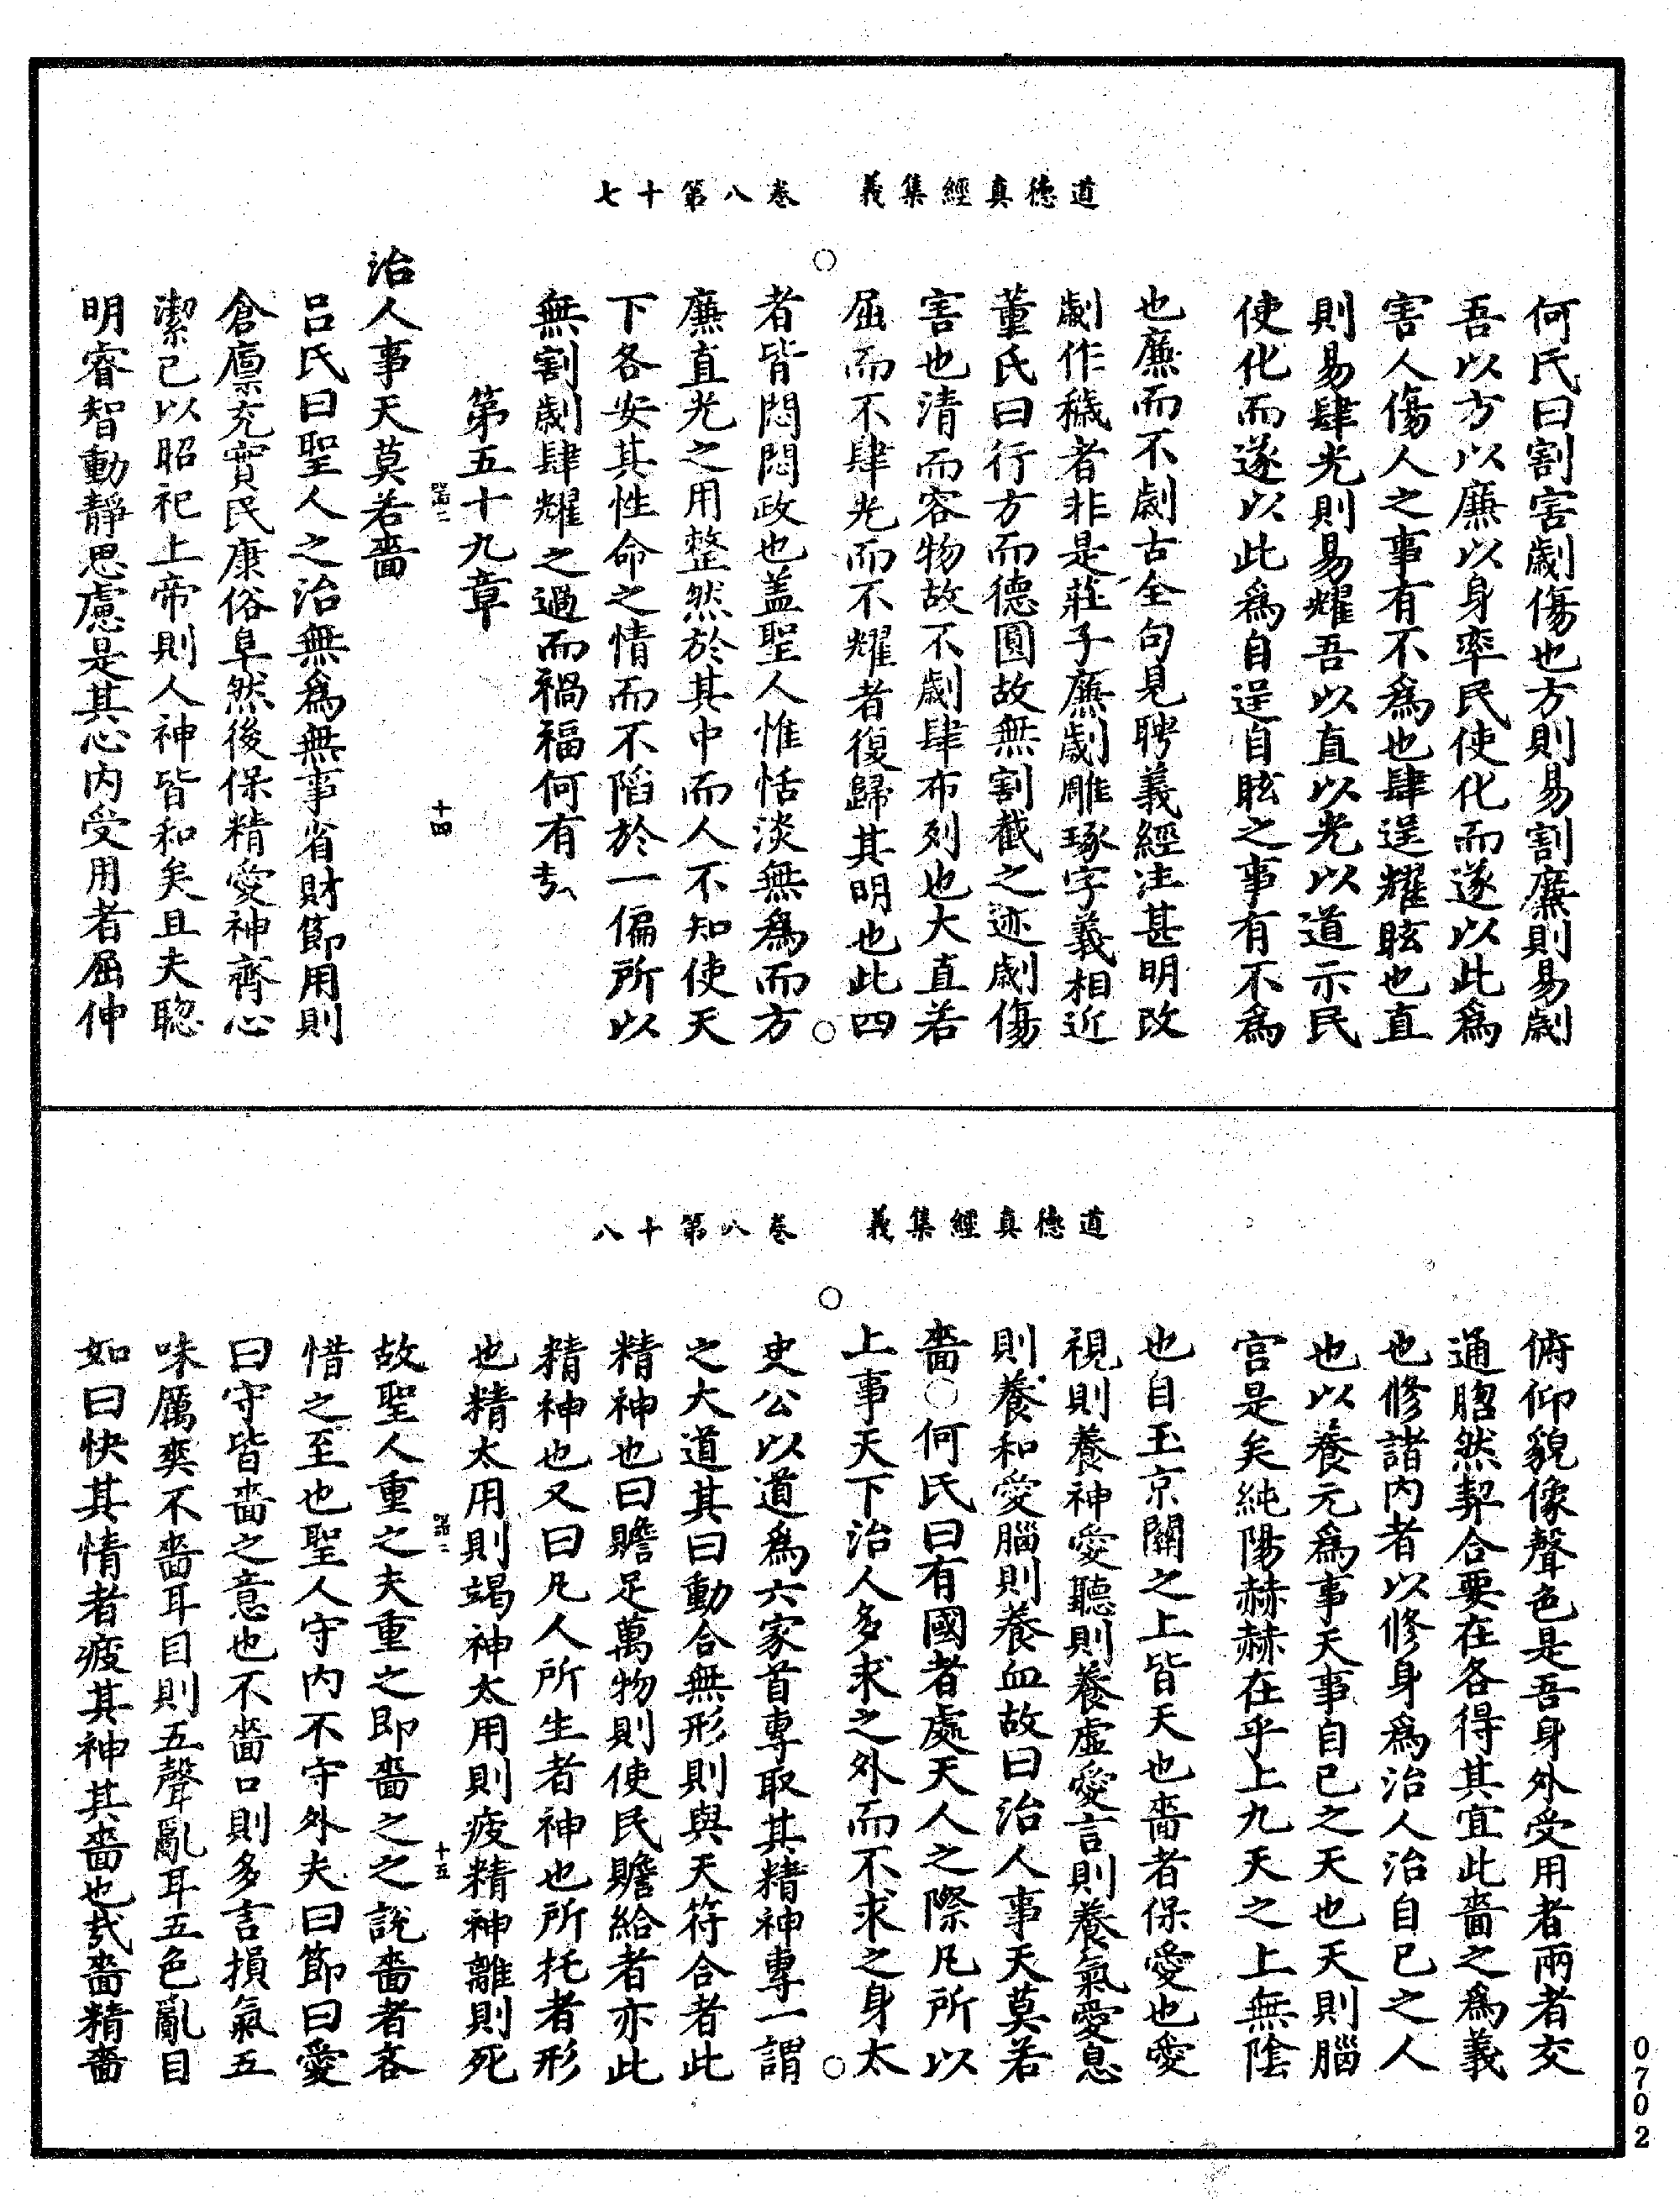 道德真經集義　卷八第十七
何氏曰割害劌傷也方則易割廉則易劌
吾以方以廉以身率民使化而遂以此為
害人傷人之事有不為也肆逞耀眩也直
則易肆光則易耀吾以直以光以道示民
使化而遂以此為自逞自眩之事有不為
也廉而不劌古全句見聘義經注甚明改
劌作穢者非是莊子廉劌雕琢字義相近
董氏曰行方而德圓故無割截之迹劌傷
害也清而容物故不劌肆布列也大直若
屈而不肆光而不耀者復歸其明也此四
○
○
者皆悶悶政也盖聖人惟恬淡無為而方
廉直光之用整然於其中而人不知使天
下各安其性命之情而不陷於一偏所以
無割劌肆耀之過而禍福何有焉
第五十九章
十四
治人事天莫若嗇
呂氏曰聖人之治無為無事省財節用則
倉廪充實民康俗阜然後保精愛神齊心
潔己以昭祀上帝則人神皆和矣且夫聦
明睿智動靜思慮是其心内受用者屈伸
道德真經集義　卷八第十八
俯仰貌像聲色是吾身外受用者兩者交
通脗然契合要在各得其宜此嗇之為義
也修諸内者以修身為治人治自已之人
也以養元為事天事自已之天也天則腦
宫是矣純陽赫赫在乎上九天之上無隂
也自玉京關之上皆天也嗇者保愛也愛
視則養神愛聽則養虛愛言則養氣愛息
則養和愛腦則養血故曰治人事天莫若
嗇○何氏曰有國者處天人之際凡所以
上事天下治人多求之外而不求之身太
○
○
史公以道為六家首專取其精神專一謂
之大道其曰動合無形則與天符合者此
精神也曰贍足萬物則使民贍給者亦此
精神也又曰凡人所生者神也所托者形
也精太用則竭神太用則疲精神離則死
十五
故聖人重之夫重之即嗇之之說嗇者吝
惜之至也聖人守内不守外夫曰節曰愛
曰守皆嗇之意也不嗇口則多言損氣五
味厲爽不嗇耳目則五聲亂耳五色亂目
如曰快其情者疲其神其嗇也㢤嗇精嗇
0702